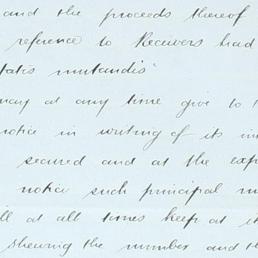 and the proceeds thereof
reference to Receivers had
tatis mutandis"
may at any time give to t
notice in writing of its in
secured and at the exp
notice such principal m
ll at all times keep at it
shewing the number and th